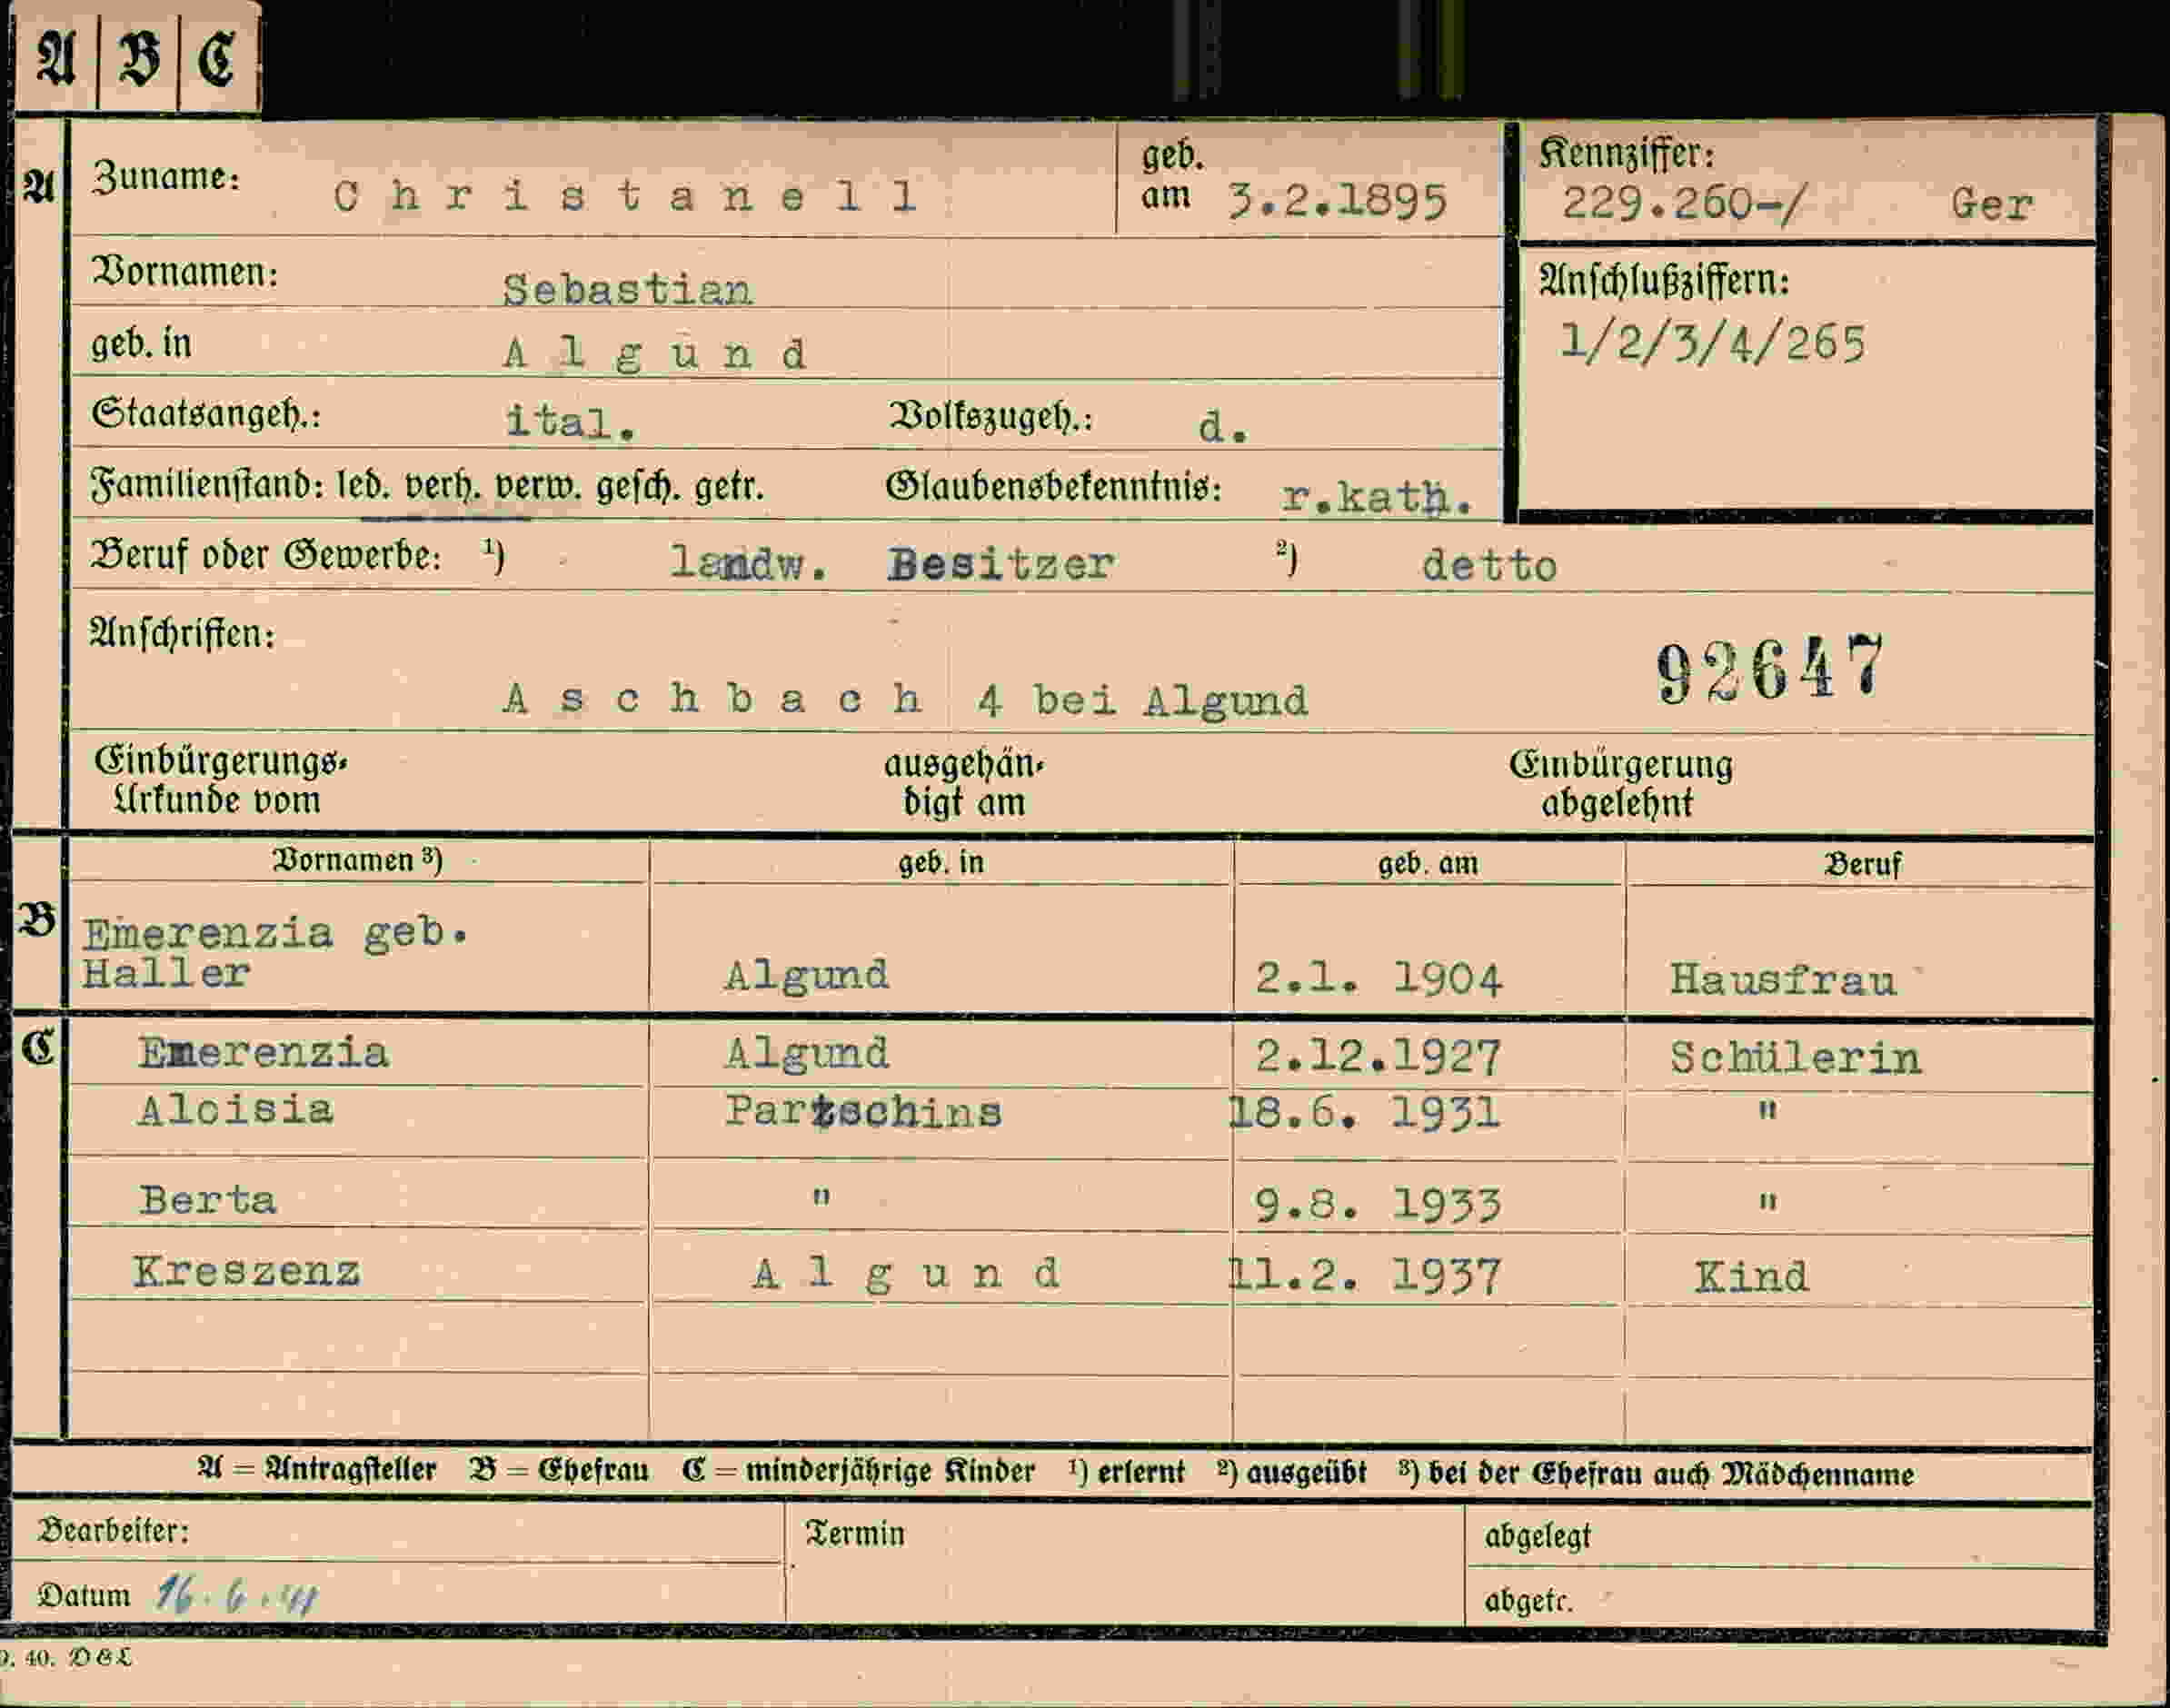 A B C
A Zuname: Christanell geb. am 3.2.1895 Kennziffer: 229.260-/ Ger
Vornamen: Sebastian Anschlußziffern:
geb. in Algund 1/2/3/4/265
Staatsangeh.: ital. Volkszugeh.: d.
Familienstand: led. verh. verw. gesch. getr. Glaubensbekenntnis: r.kath.
Beruf oder Gewerbe: ¹) landw. Besitzer ²) detto
Anschriften:
92647
Aschbach 4 bei Algund
Einbürgerungs- ausgehän- Einbürgerung
Urkunde vom digt am abgelehnt
Vornamen ³) geb. in geb. am Beruf
B Emerenzia geb.
Haller Algund 2.1. 1904 Hausfrau
C Emerenzia Algund 2.12.1927 Schülerin
Aloisia Partschins 18.6. 1931 "
Berta " 9.8. 1933 "
Kreszenz Algund 11.2. 1937 Kind
A = Antragsteller B = Ehefrau C = minderjährige Kinder ¹) erlernt ²) ausgeübt ³) bei der Ehefrau auch Mädchenname
Bearbeiter: Termin abgelegt
Datum 16.6.41 abgetr.
40. D&L